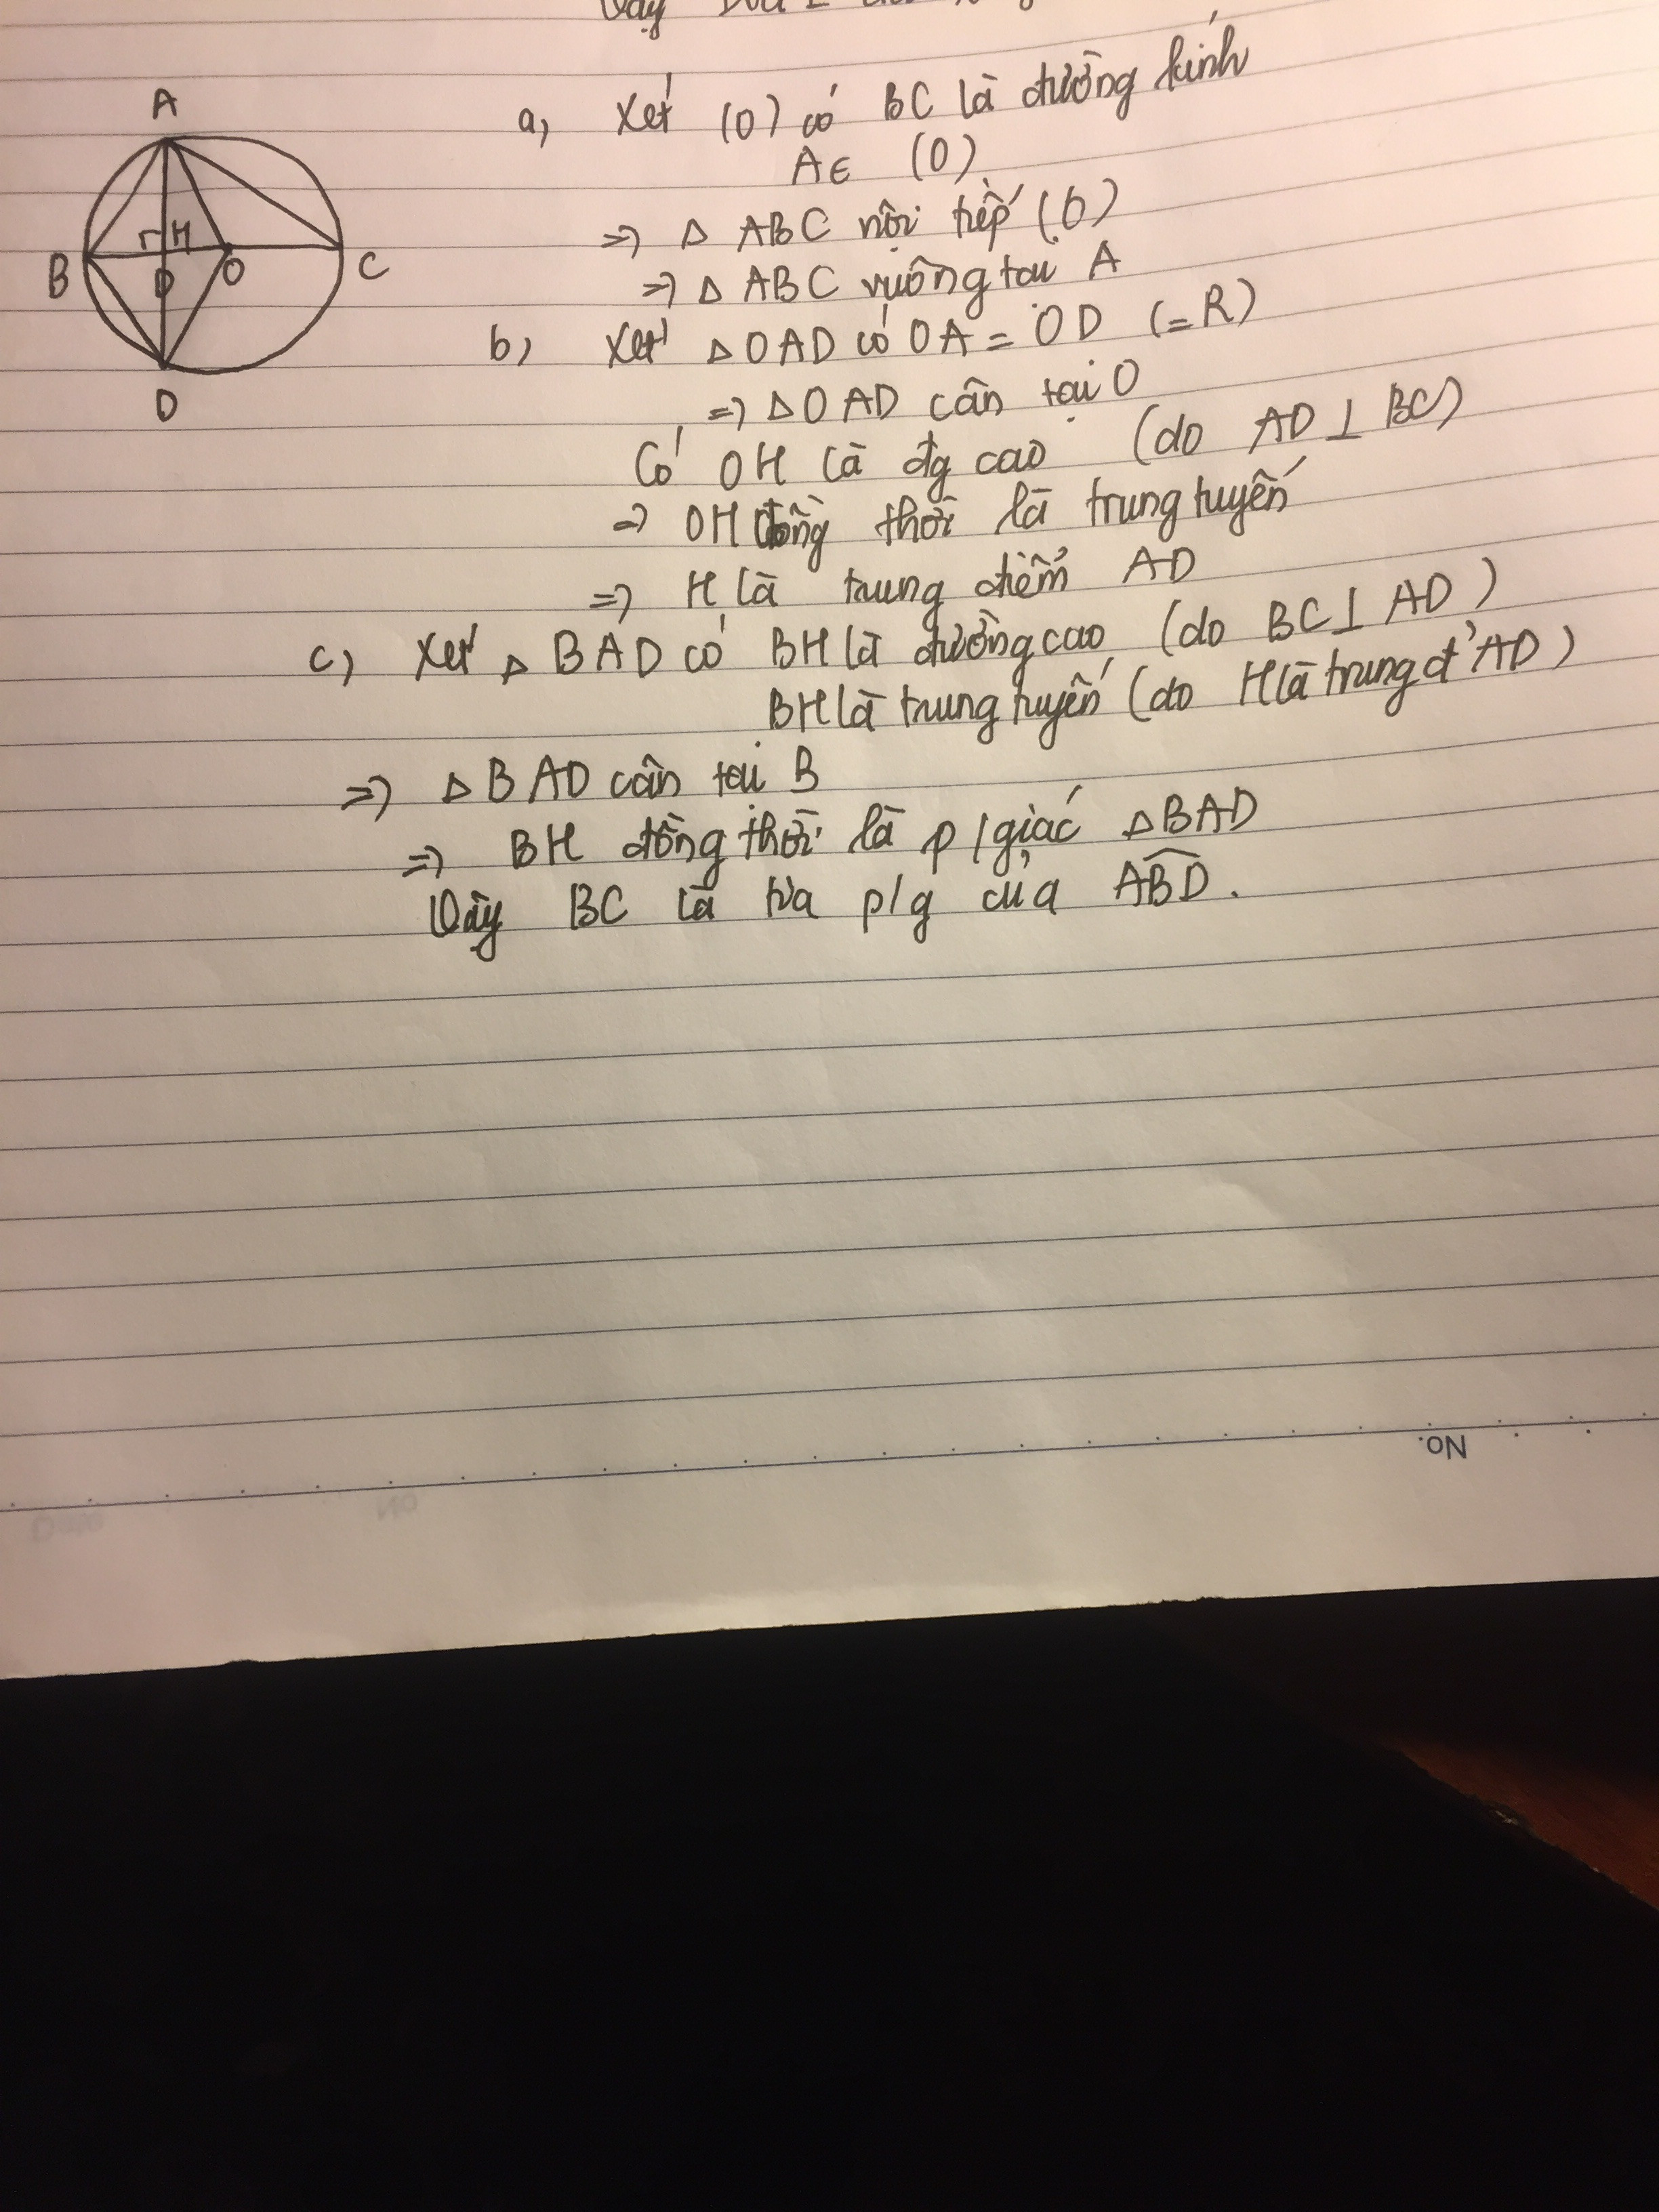 Vậy
A
B
H
O
C
D
D
a, Xét (O) có BC là đường kính
A∈ (O)
=> △ ABC nội tiếp (O)
=> △ ABC vuông tại A
b, Xét △OAD có OA = OD (=R)
=> △OAD cân tại O
Có OH là đg cao (do AD ⊥ BC)
=> OH đồng thời là trung tuyến
=> H là trung điểm AD
c, Xét △ BAD có BH là đường cao (do BC⊥ AD)
BH là trung tuyến (do H là trung đ' AD)
=> △BAD cân tại B
=> BH đồng thời là p/giác △BAD
Vậy BC là tia p/g của ABD.
No.